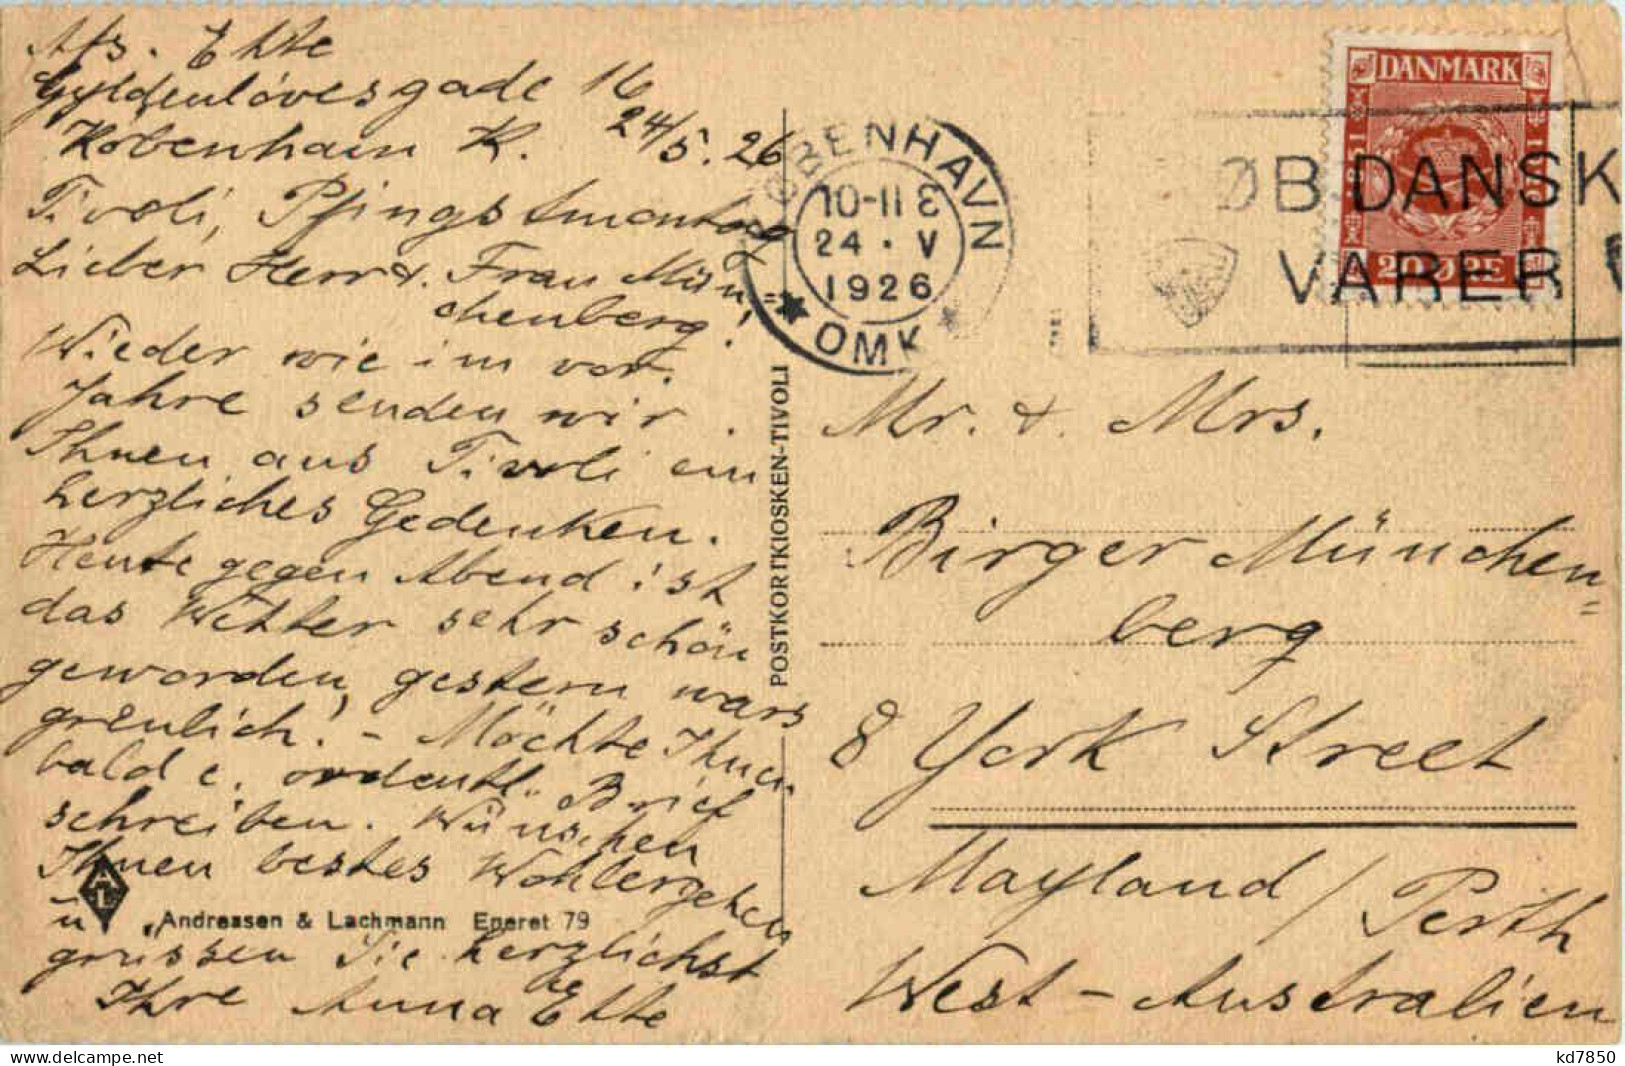 Afs. Ekte
Gyldenlövesgade 16
Kobenhavn K. 24/5. 26
Tivoli, Pfingstmontag
Lieber Herr & Frau Mün=
chenberg!
Wieder wie im vor.
Jahre senden wir
Ihnen aus Tivoli ein
herzliches Gedenken.
Heute gegen Abend ist
das Wetter sehr schön
geworden, gestern wars
greulich! - Möchte Ihnen
bald e. ordentl. Brief
schreiben. Wünschen
Ihnen bestes Wohlergehen
u.
grüssen Sie herzlichst
Ihre Anna Ekte
Andreasen & Lachmann Eneret 79
POSTKORTKIOSKEN-TIVOLI
KØBENHAVN
10-11 E
24 · V
1926
OMK
ØB DANSK
VARER
DANMARK
20 ØRE
Mr. & Mrs.
Birger München=
berg
8 York Street
Mayland / Perth
West-Australien
kd7850